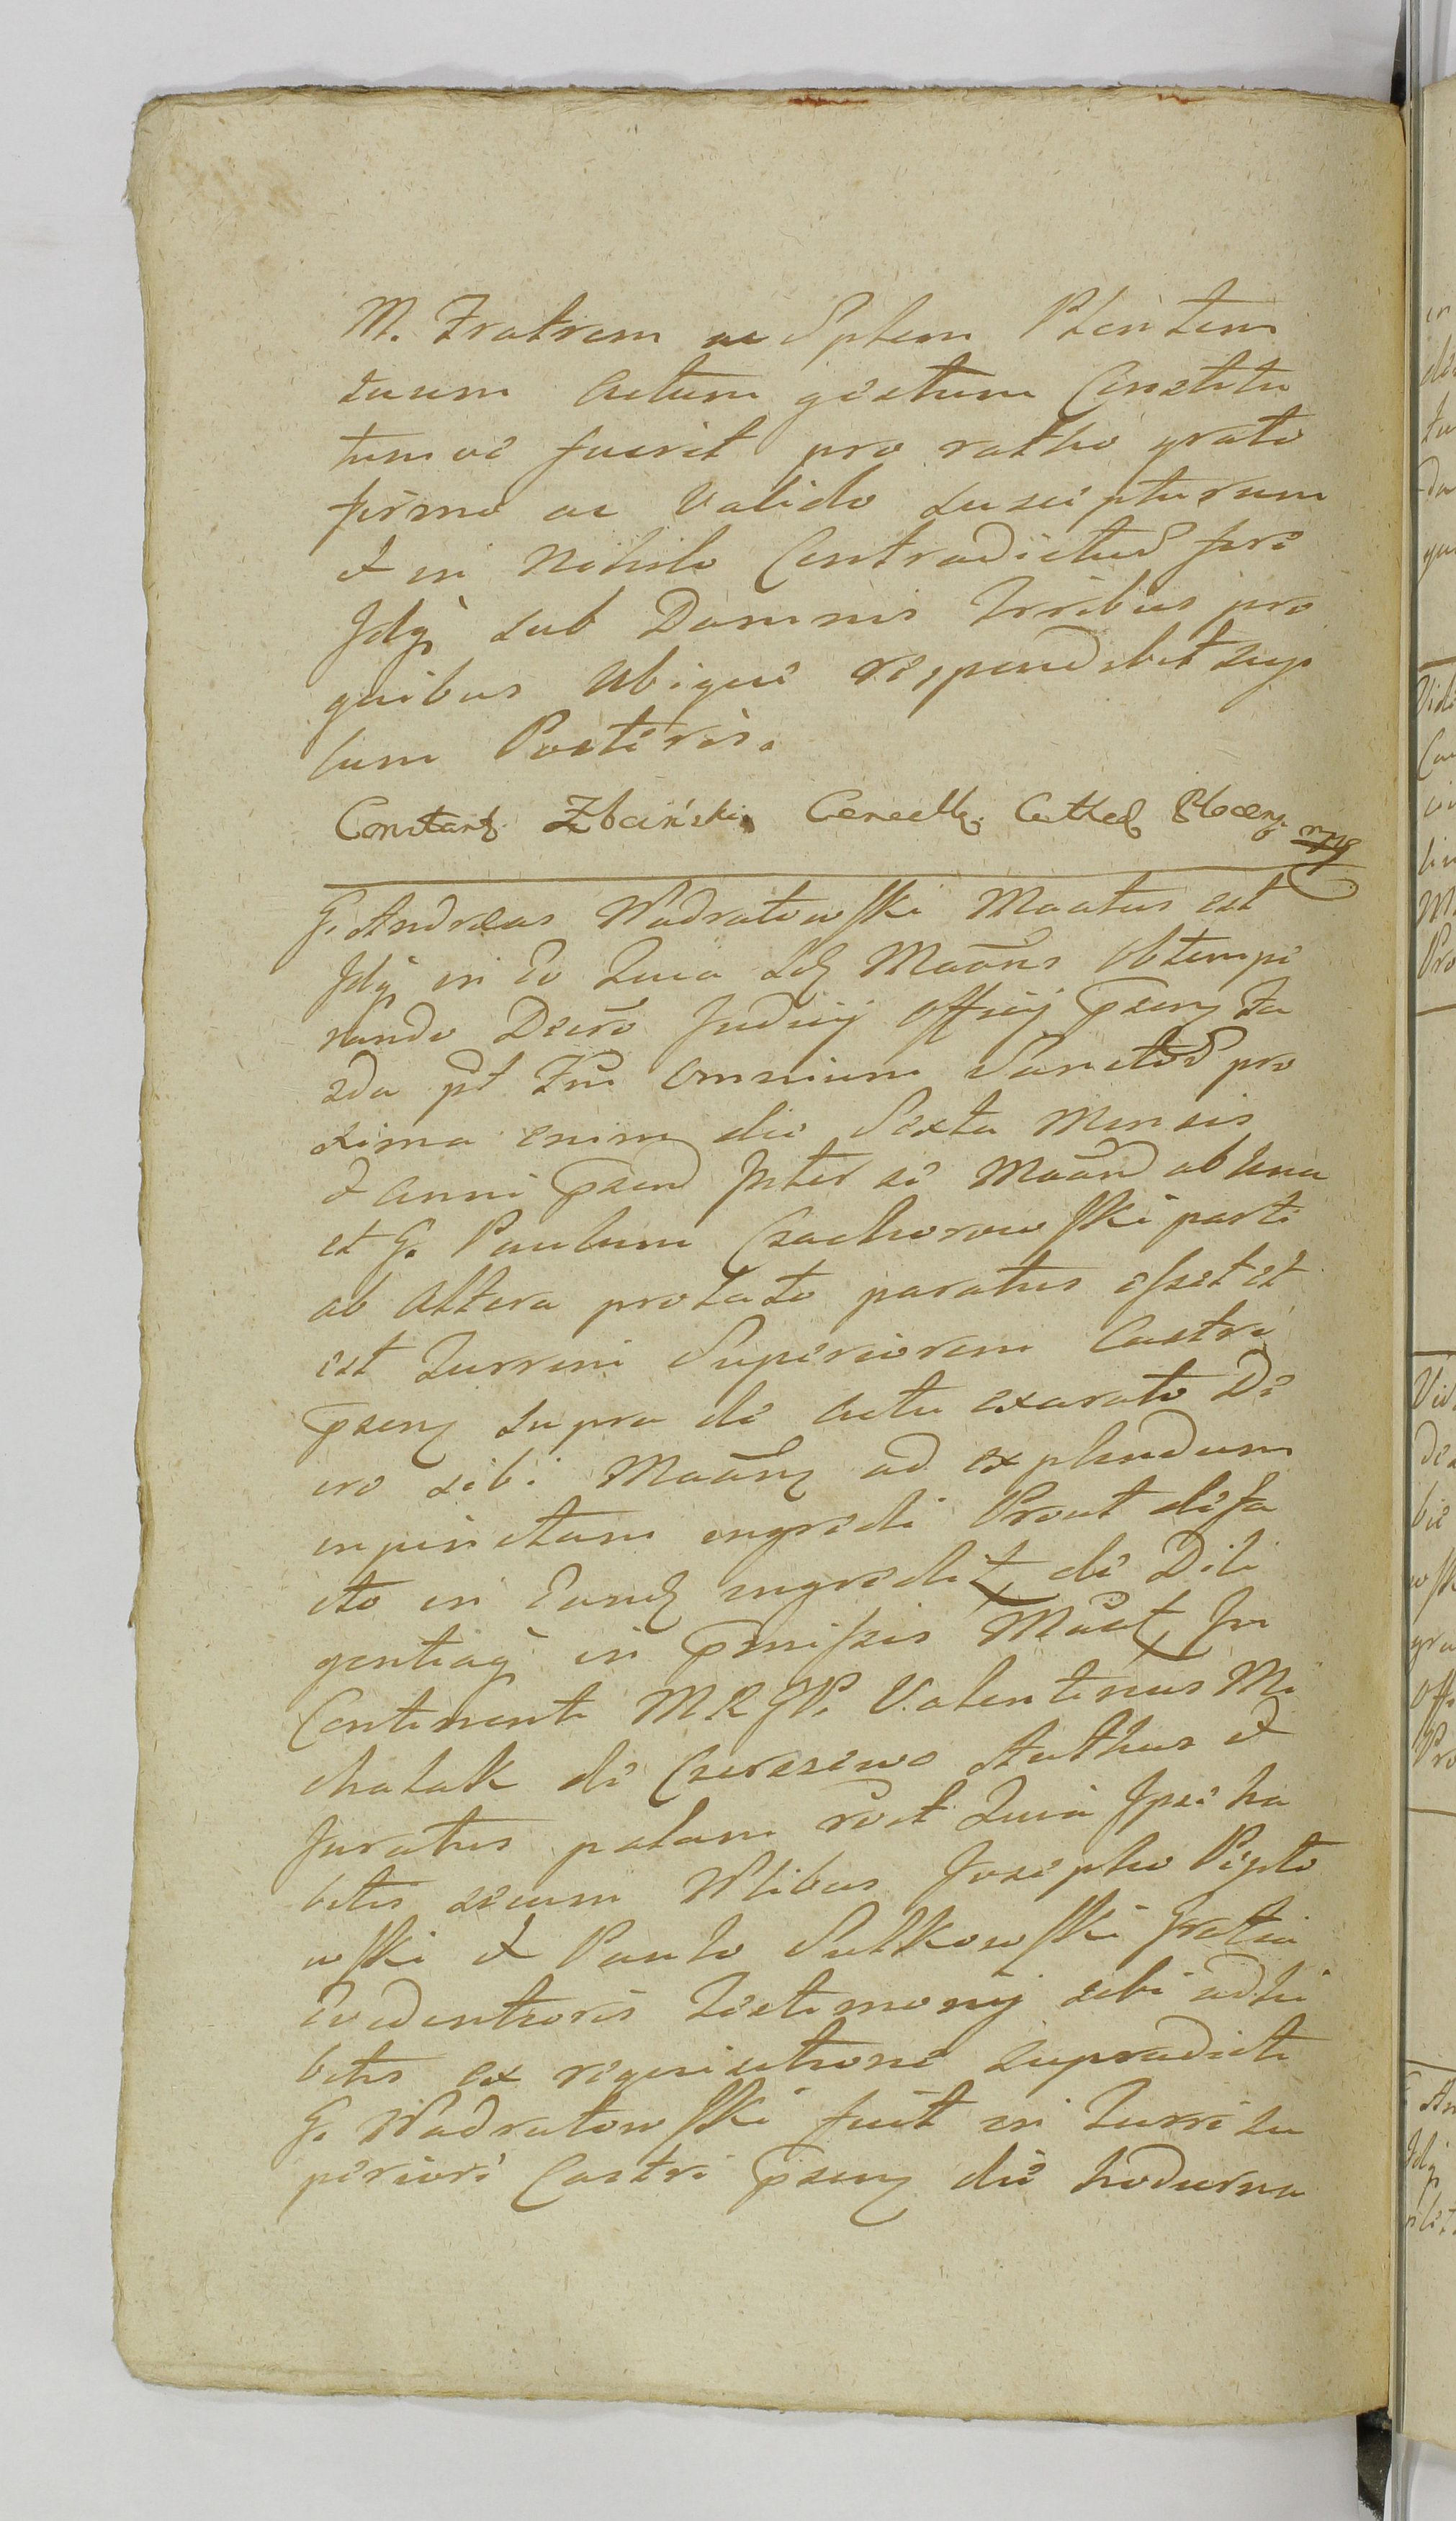 M. Fratrem ac Sptem Plentem
suum actum gestum Constitu
tumve fuerit pro ratho grato
firmo ac Valido suscipturum
& in Nihilo Contradictur fore
Idq sub Damnis Irribus pro
quibus Ubique respondebit sup
lum Posteris.
Constant. Zboiński Cancell. Cathed Plocen mp
G. Andreas Nadratowski Maatus est
Idq in Eo Quia Id Maans Obtempe
rando Decro Judicij Officij psen fa
2da pt Ftm Omnium Sanctor pro
xima enim die Sexta Mensis
& anni psen Inter se Maan ab una
et G. Paulum Czachorowski parte
ab Altera prolato paratus esset et
est Turrim Superiorem Castri
psen supra de actu exarato De
cro sibi Maan ad explendum
inpinctam ingredi Prout de fa
cto in Eand ingredit de Dili
gentiaq in pmissis Maat In
Continenti MRGP. Valentinus Mi
chalak de Czerszewo Authus &
Juratus palam rcvit Quia Ipse ha
bitis secum Nlibus Josepho Pigło
wski & Paulo Sulkowski Gratia
Evidentioris Testimonij sibi adhi
bitis ex requisitione supradicti
G. Nadratowski fuit in Turri Su
periori Castri psen die hodierna